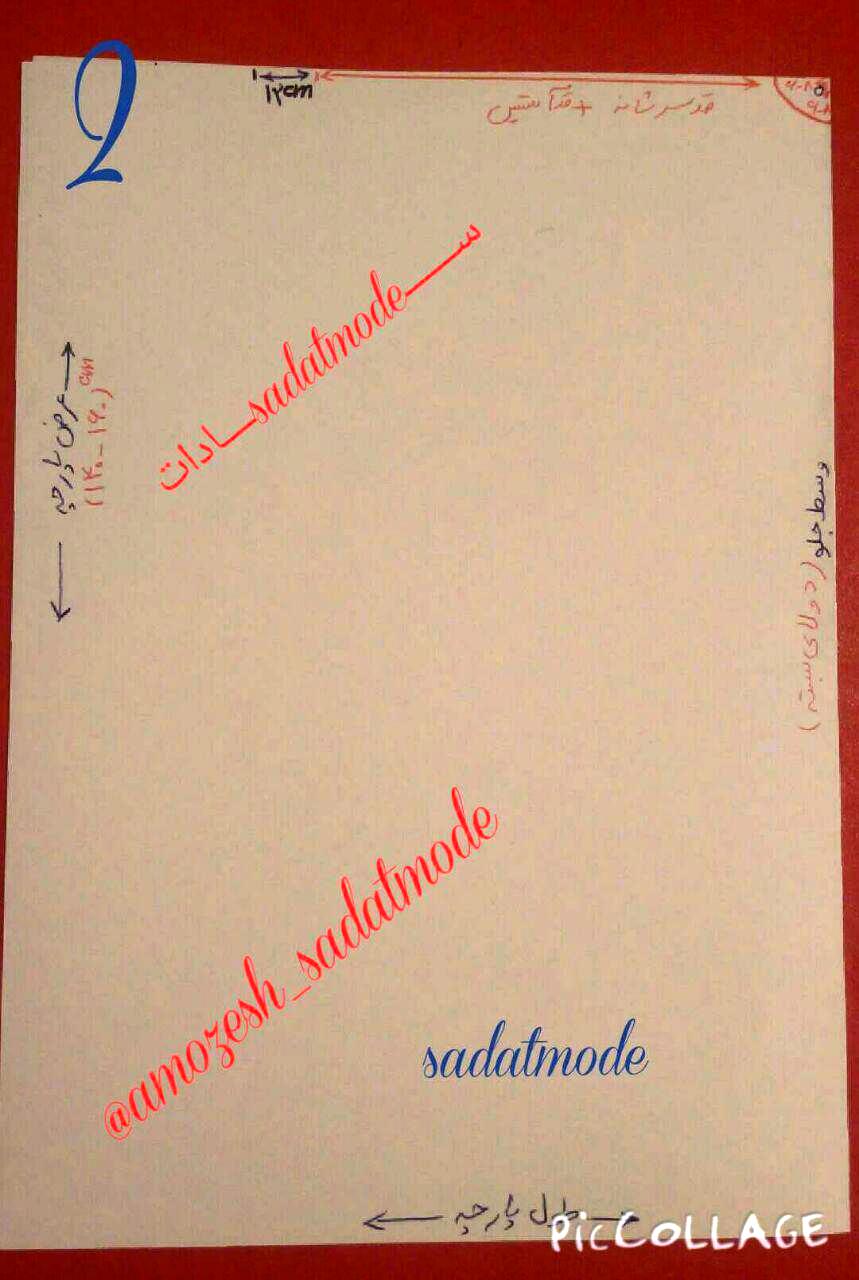 2
۱۲cm
قد سرشانه + قد آستین
ســـادات sadatmode
عرض پارچه
(۱۴۰-۱۶۰) cm
وسط جلو
(دولای بسته)
@amozesh_sadatmode
sadatmode
طول پارچه
PicCOLLAGE